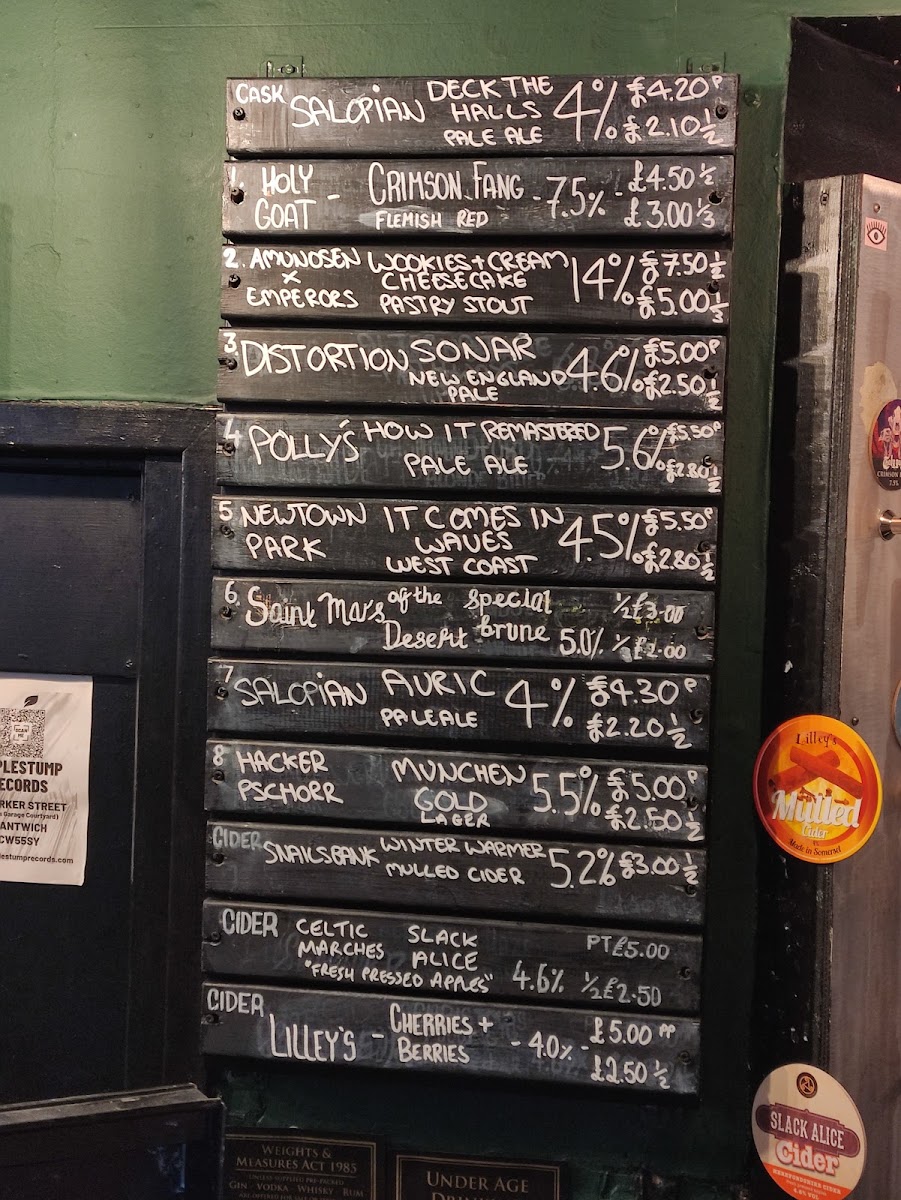 CASK SALOPIAN DECK THE HALLS PALE ALE 4% £4.20 P £2.10 ½
1. HOLY GOAT - CRIMSON FANG FLEMISH RED - 7.5% - £4.50 ½ £3.00 ⅓
2. AMUNDSEN X EMPERORS WOOKIES + CREAM CHEESECAKE PASTRY STOUT 14% £7.50 ½ £5.00 ⅓
3 DISTORTION SONAR NEW ENGLAND PALE 4.6% £5.00 P £2.50 ½
4 POLLY'S HOW IT REMASTERED PALE ALE 5.6% £5.50 P £2.80 ½
5 NEWTOWN PARK IT COMES IN WAVES WEST COAST 4.5% £5.50 P £2.80 ½
6 Saint Mars of the Desert special brune 5.0% ½ £3.00 ⅓ £2.00
7 SALOPIAN AURIC PALE ALE 4% £4.30 P £2.20 ½
8 HACKER PSCHORR MUNCHEN GOLD LAGER 5.5% £5.00 P £2.50 ½
CIDER SNAILSBANK WINTER WARMER MULLED CIDER 5.2% £3.00 ½
CIDER CELTIC MARCHES SLACK ALICE "FRESH PRESSED APPLES" 4.6% PT £5.00 ½ £2.50
CIDER LILLEY'S - CHERRIES + BERRIES - 4.0% - £5.00 PP £2.50 ½
SCAN ME
PLESTUMP
ECORDS
RKER STREET
Garage Courtyard)
ANTWICH
CW55SY
lestumprecords.com
CRIMSON
7.5%
Lilley's
Mulled
Cider
Made in Somerset
SLACK ALICE
Cider
HEREFORDSHIRE CIDER
WEIGHTS &
MEASURES ACT 1985
GIN · VODKA · WHISKY · RUM
UNDER AGE